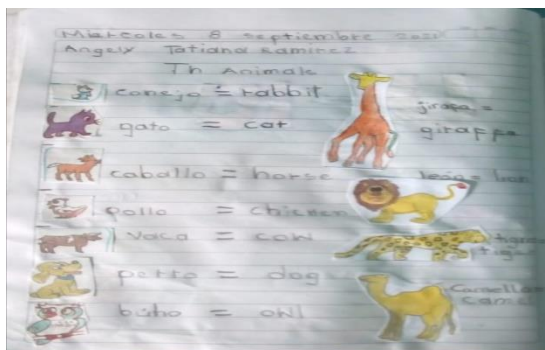 Miercoles 8 septiembre 2021
Angely Tatiana Ramirez
Th Animals
conejo = rabbit
gato = cat
caballo = horse
pollo = chicken
vaca = cow
perro = dog
búho = owl
jirafa =
giraffe
león = lion
tigre
Camello =
camel